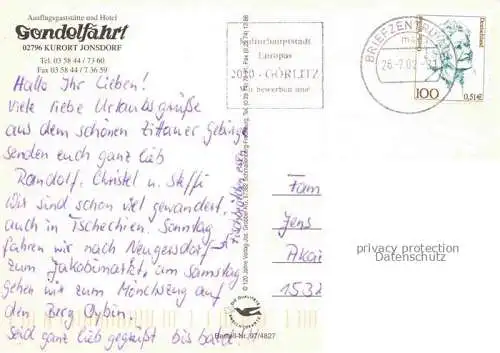 Ausflugsgaststätte und Hotel
Gondelfahrt
02796 KURORT JONSDORF
Tel. 03 58 44 / 73 60
Fax 03 58 44 / 7 36 59
Hallo Ihr Lieben!
Viele liebe Urlaubsgrüße
aus dem schönen Zittauer Gebirge
senden euch ganz lieb
Randolf, Christel u. Steffi
Wir sind schon viel gewandert,
auch in Tschechien. Sonntag
fahren wir nach Neugersdorf
zum Jakobimarkt, am Samstag
gehen wir zum Mönchszug auf
den Berg Oybin.
Seid ganz lieb gegrüßt bis bald!
© 120 Jahre Verlag Jos.
DIE QUALITÄTS
ANSICHTSKARTE
Bestell-Nr. 97/4827
Kulturhauptstadt
Europas
2010 - GÖRLITZ
Wir bewerben uns!
BRIEFZENTRUM
26.-7.02
Deutschland
100
0,51€
Fam
Jens
1532
privacy protection
Datenschutz